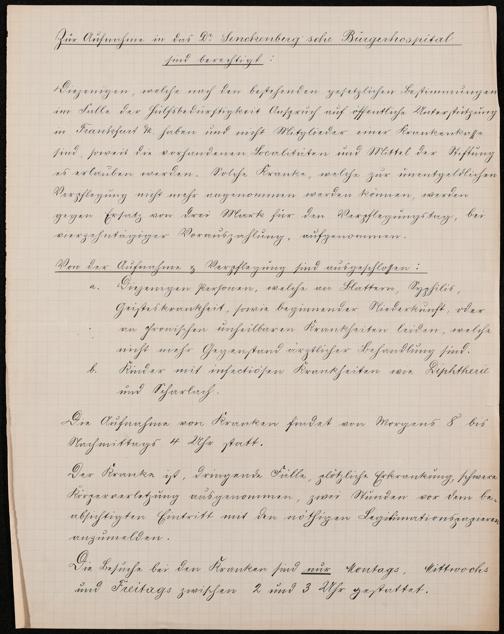 Zur Aufnahme in das Dr. Senckenberg'sche Bürgerhospital
sind berechtigt:
Diejenigen, welche nach den bestehenden gesetzlichen Bestimmungen
im Falle der Hülfsbedürftigkeit Anspruch auf öffentliche Unterstützung
in Frankfurt haben und nicht Mitglieder einer Krankenkasse
sind, soweit die vorhandenen Localitäten und Mittel der Stiftung
es erlauben werden. Solche Kranke, welche zur unentgeldlichen
Verpflegung nicht mehr angenommen werden können, werden
gegen Ersatz von drei Mark für den Verpflegungstag, bei
vierzehntägiger Vorauszahlung, aufgenommen.
Von der Aufnahme & Verpflegung sind ausgeschlossen:
a. Diejenigen Personen, welche an Blattern, Syphilis,
Geisteskrankheit, sowie beginnender Niederkunft, oder
an chronischen unheilbaren Krankheiten leiden, welche
nicht mehr Gegenstand ärztlicher Behandlung sind.
b. Kinder mit infectiösen Krankheiten wie Diphtherie
und Scharlach.
Die Aufnahme von Kranken findet von Morgens 8 bis
Nachmittags 4 Uhr statt.
Der Kranke ist, dringende Fälle, plötzliche Erkrankung, schwere
Körperverletzung ausgenommen, zwei Stunden vor dem be-
absichtigten Eintritt mit den nöthigen Legitimationspapieren
anzumelden.
Die Besuche bei den Kranken sind nur Montags, Mittwochs
und Freitags zwischen 2 und 3 Uhr gestattet.